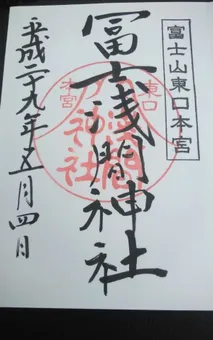 富士山東口本宮
冨士浅間神社
平成二十九年五月四日
東口
本宮